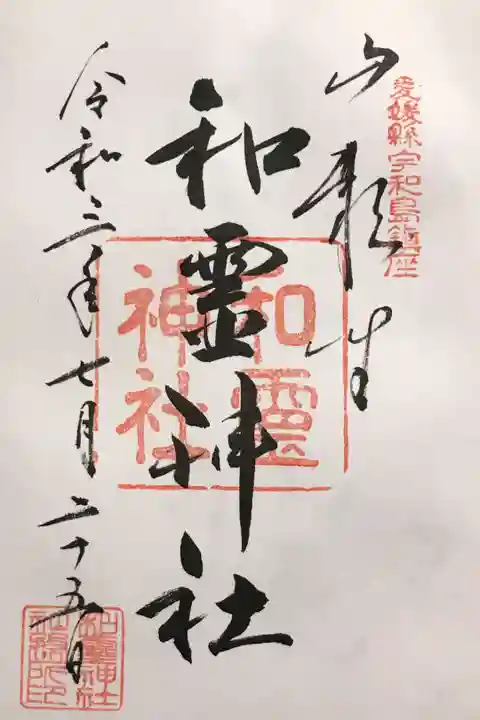 愛媛縣宇和島鎮座
山頼生
和霊神社
和霊
神社
令和三年七月二十五日
和霊神社
社務所印